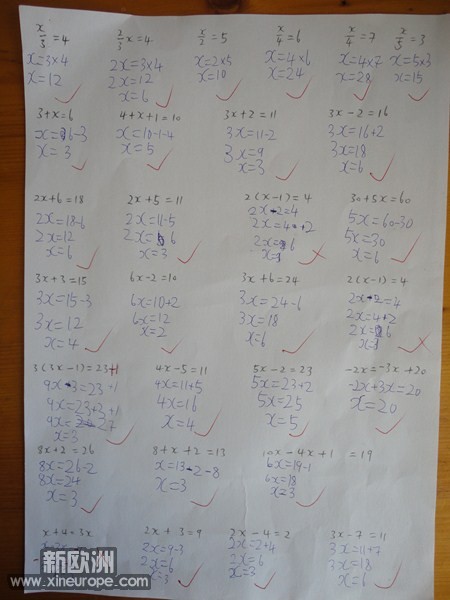 x/3 = 4 2/3 x = 4 x/2 = 5 x/4 = 6 x/4 = 7 x/5 = 3
x=3×4 2x=3×4 x=2×5 x=4×6 x=4×7 x=5×3
x=12 2x=12 x=10 x=24 x=28 x=15
x=6
3+x=6 4+x+1=10 3x+2=11 3x-2=16
x=6-3 x=10-1-4 3x=11-2 3x=16+2
x=3 x=5 3x=9 3x=18
x=3 x=6
2x+6=18 2x+5=11 2(x-1)=4 30+5x=60
2x=18-6 2x=11-5 2x-2=4 5x=60-30
2x=12 2x=6 2x=4+2 5x=30
x=6 x=3 2x=6 x=6
3x+3=15 6x-2=10 3x+6=24 2(x-1)=4
3x=15-3 6x=10+2 3x=24-6 2x-2=4
3x=12 6x=12 3x=18 2x=4+2
x=4 x=2 x=6 2x=6
3(3x-1)=23+1 4x-5=11 5x-2=23 -2x=-3x+20
9x-3=23+1 4x=11+5 5x=23+2 -2x+3x=20
9x=23+3+1 4x=16 5x=25 x=20
9x=27 x=4 x=5
x=3
8x+2=26 8+x+2=13 10x-4x+1=19
8x=26-2 x=13-2-8 6x=19-1
8x=24 x=3 6x=18
x=3 x=3
x+4=3x 2x+3=9 2x-4=2 3x-7=11
2x=9-3 2x=2+4 3x=11+7
2x=6 2x=6 3x=18
x=3 x=3 x=6
新欧洲
www.xineurope.com